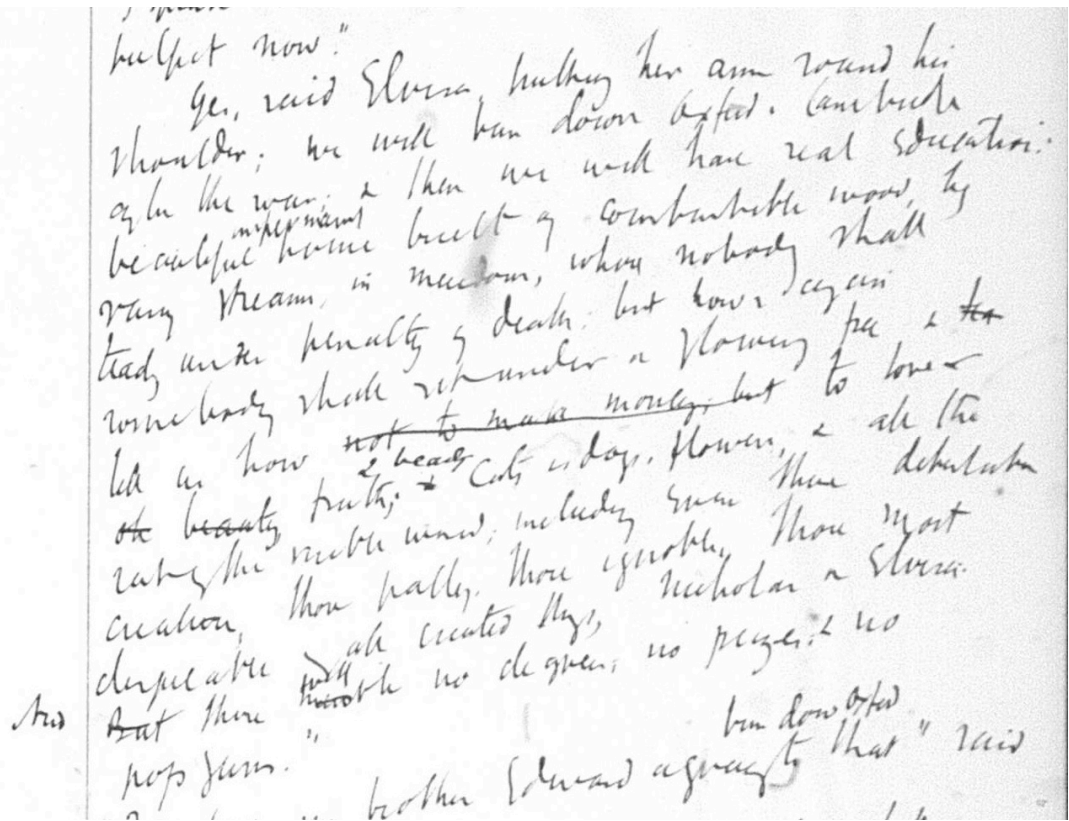 pulpit now."
Yes, said Elvira, putting her arm round his
shoulder; we will burn down Oxford & Cambridge
after the war; & then we will have real education:
beautiful impermanent houses built of combustible wood, by
streams, in meadows, where nobody shall
teach under penalty of death; but now & again
somebody shall sit under a flowering tree &
tell us how not to make money, but to love
beauty truth; & beauty & cats & dogs, flowers, & all the
rest of the visible world; including even those
creation, those paltry, those ignoble, those most
despicable of all created things, Nicholas & Elvira.
And But there will be no degrees; no prizes; & no
"
burn down Oxford
brother Edward agreeing to that" said